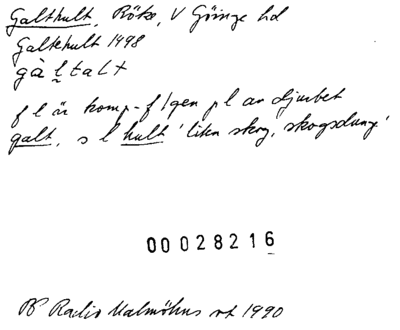 Galthult, Röke, V Göinge hd
Galtehult 1498
gàltalt
f l är komp-f /gen pl av djurbet
galt, s l hult 'liten skog, skogsdunge'
00 028216
PB Radio Malmöhus vt 1990